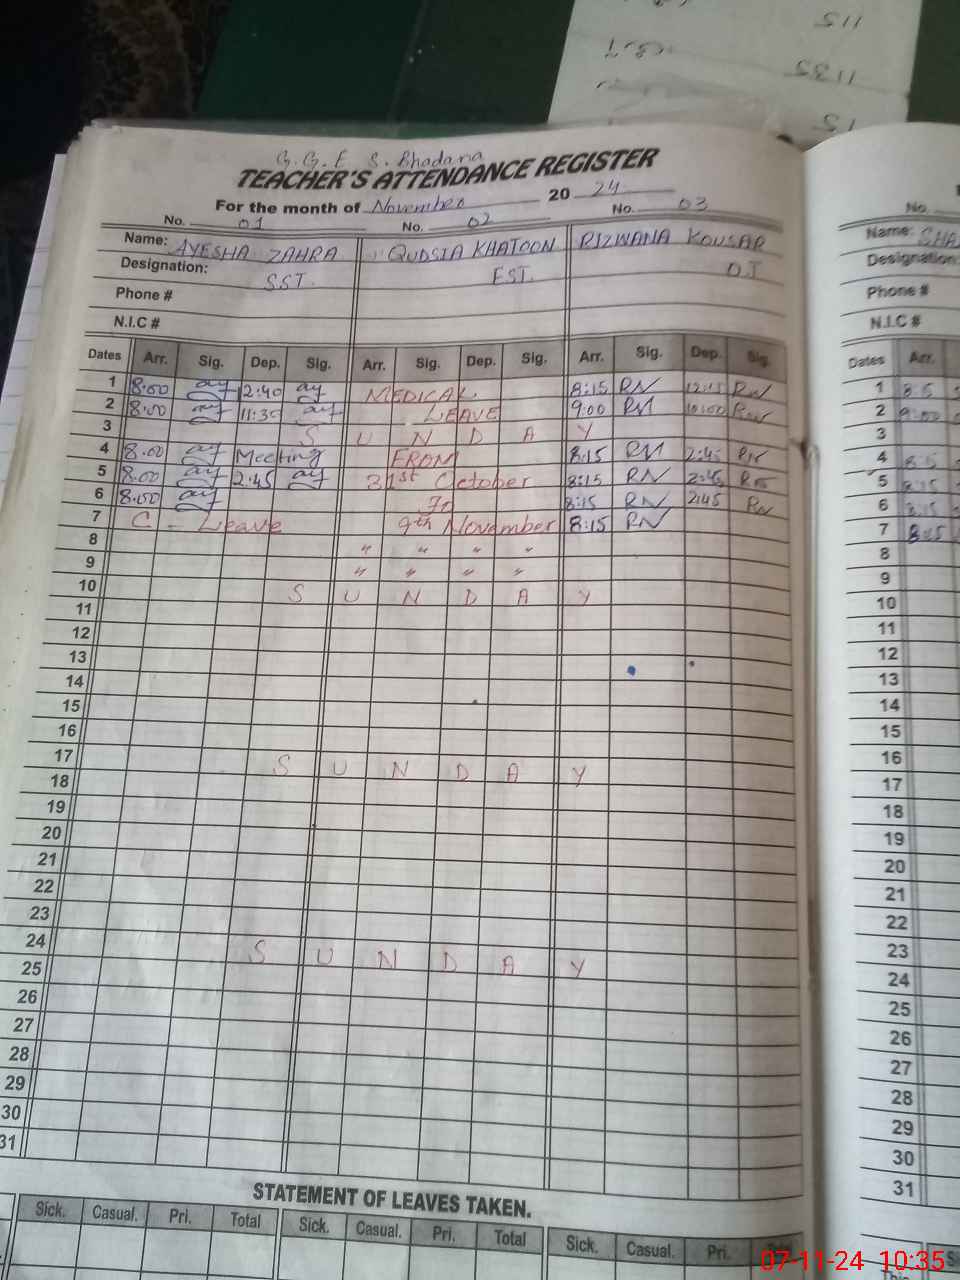 115
1135
G. G. E S. Bhadana
TEACHER'S ATTENDANCE REGISTER
For the month of November 20 24
No. 01 No. 02 No. 03
Name: AYESHA ZAHRA QUDSIA KHATOON RIZWANA KOUSAR
Designation: SST. EST. D.I
Phone #
N.I.C #
Dates Arr. Sig. Dep. Sig. Arr. Sig. Dep. Sig. Arr. Sig. Dep. Sig.
1 8.00 ay 2:40 ay MEDICAL 8:15 RN 12:15 RN
2 8.00 ay 11:30 ay LEAVE 9:00 RN 10:00 RN
3 S U N D A Y
4 8.00 ay Meeting FROM 8:15 RN 2:45 RN
5 8.00 ay 2:45 ay 31st October 8:15 RN 2:45 RN
6 8.00 ay To 8:15 RN 2:45 RN
7 C - Leave 9th November 8:15 RN
8 " " " "
9 " " " "
10 S U N D A Y
11
12
13
14
15
16
17 S U N D A Y
18
19
20
21
22
23
24 S U N D A Y
25
26
27
28
29
30
31
STATEMENT OF LEAVES TAKEN.
Sick. Casual. Pri. Total Sick. Casual. Pri. Total Sick. Casual. Pri.
No.
Name: SHA
Designation:
Phone #
N.I.C #
Dates Arr.
1 8:5
2 9:00
3
4 8:5
5 8:15
6 8:15
7 8:15
8
9
10
11
12
13
14
15
16
17
18
19
20
21
22
23
24
25
26
27
28
29
30
31
07-11-24 10:35